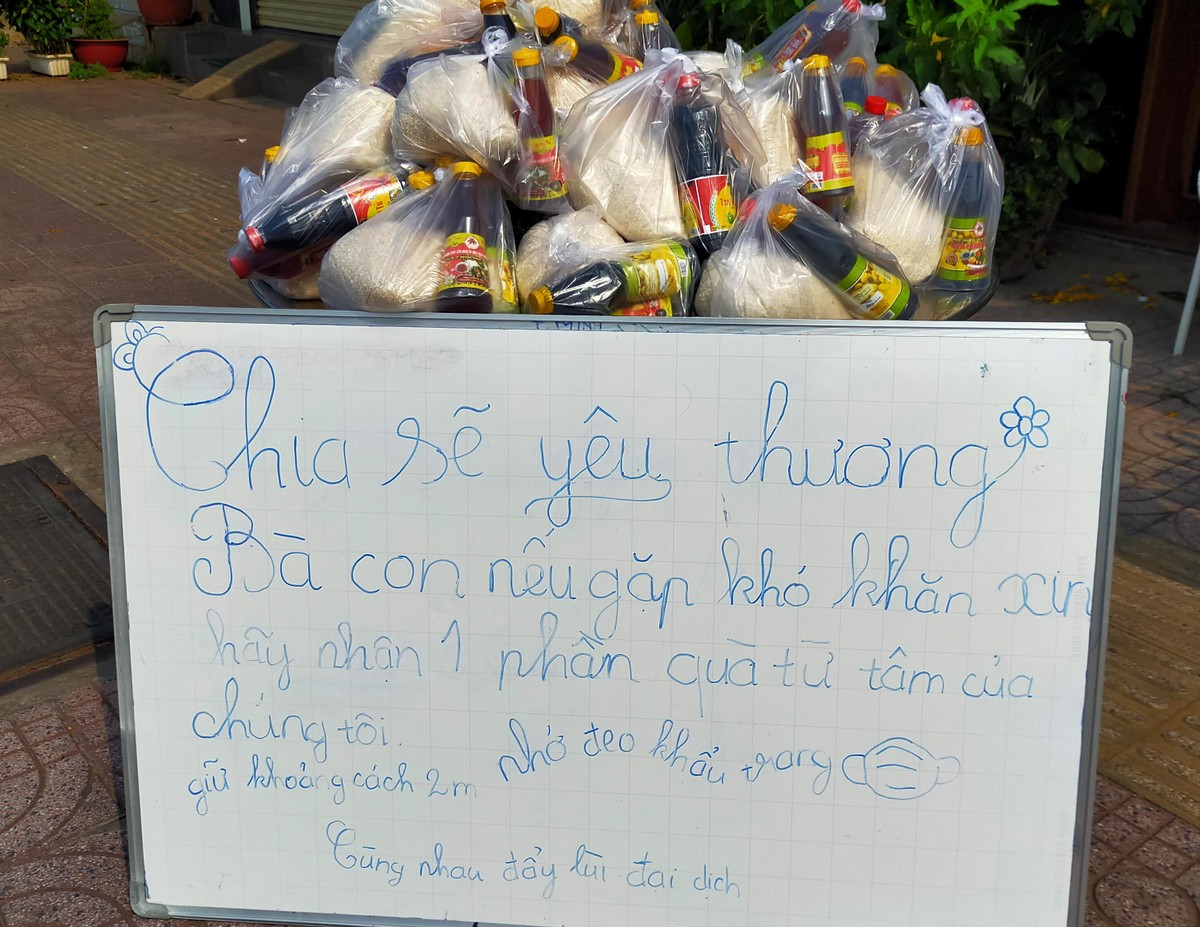 Chia sẽ yêu thương
Bà con nếu gặp khó khăn xin
hãy nhận 1 phần quà từ tâm của
chúng tôi.
nhớ đeo khẩu trang
giữ khoảng cách 2m
Cùng nhau đẩy lùi đại dịch